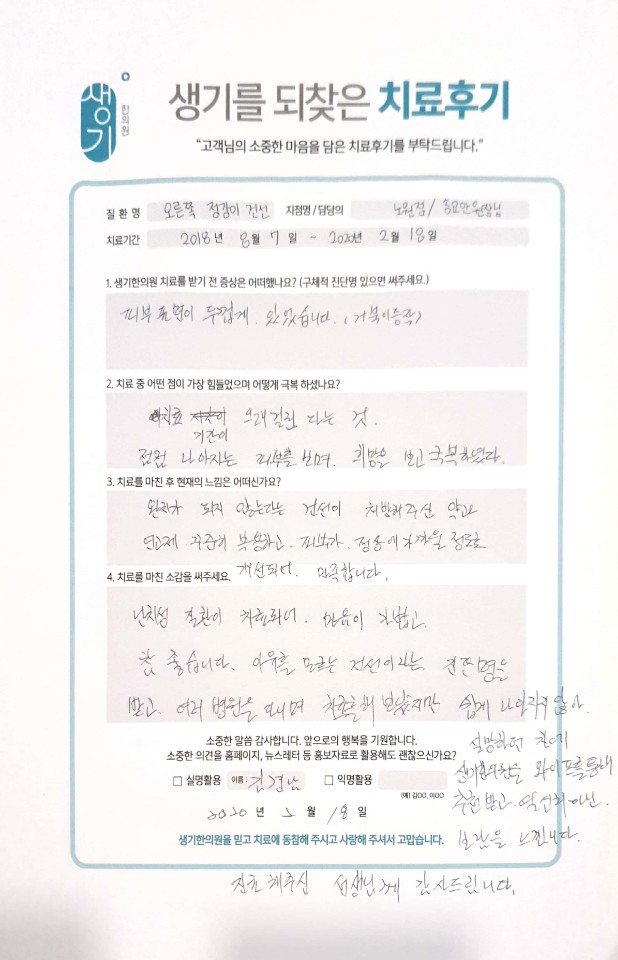 생기
한의원
생기를 되찾은 치료후기
"고객님의 소중한 마음을 담은 치료후기를 부탁드립니다."
질 환 명 오른쪽 정강이 건선 지점명 / 담당의 노원점 / 원장님
치료기간 2018년 8월 7일 ~ 2020년 2월 18일
1. 생기한의원 치료를 받기 전 증상은 어떠했나요? (구체적 진단명 있으면 써주세요.)
피부 표면이 두껍게 있었습니다. (거북이등짝)
2. 치료 중 어떤 점이 가장 힘들었으며 어떻게 극복 하셨나요?
치료 오래 걸린 다는 것.
기간이
점점 나아지는 피부를 보며. 희망을 보고 극복하였다.
3. 치료를 마친 후 현재의 느낌은 어떠신가요?
완치가 되지 않는다는 건선이 처방해 주신 약과
연고제 꾸준히 복용하고. 피부가. 정상에 가까울 정도로
개선되어. 만족합니다.
4. 치료를 마친 소감을 써주세요.
난치성 질환이 치료되어. 마음이 가볍고.
참 좋습니다. 이유를 모르는 건선이라는 진단명을
받고. 여러 병원을 다니며 치료를 해 보았지만 쉽게 나아지지 않아.
실망하던 차에
생기한의원을 와이프를 통해
추천받고. 열심히 다닌.
보람을 느낍니다.
소중한 말씀 감사합니다. 앞으로의 행복을 기원합니다.
소중한 의견을 홈페이지, 뉴스레터 등 홍보자료로 활용해도 괜찮으신가요?
□ 실명활용 이름 : 김경남 □ 익명활용
(예) 김OO, 이OO
2020 년 2 월 18 일
생기한의원을 믿고 치료에 동참해 주시고 사랑해 주셔서 고맙습니다.
진료 해주신 선생님께 감사드립니다.